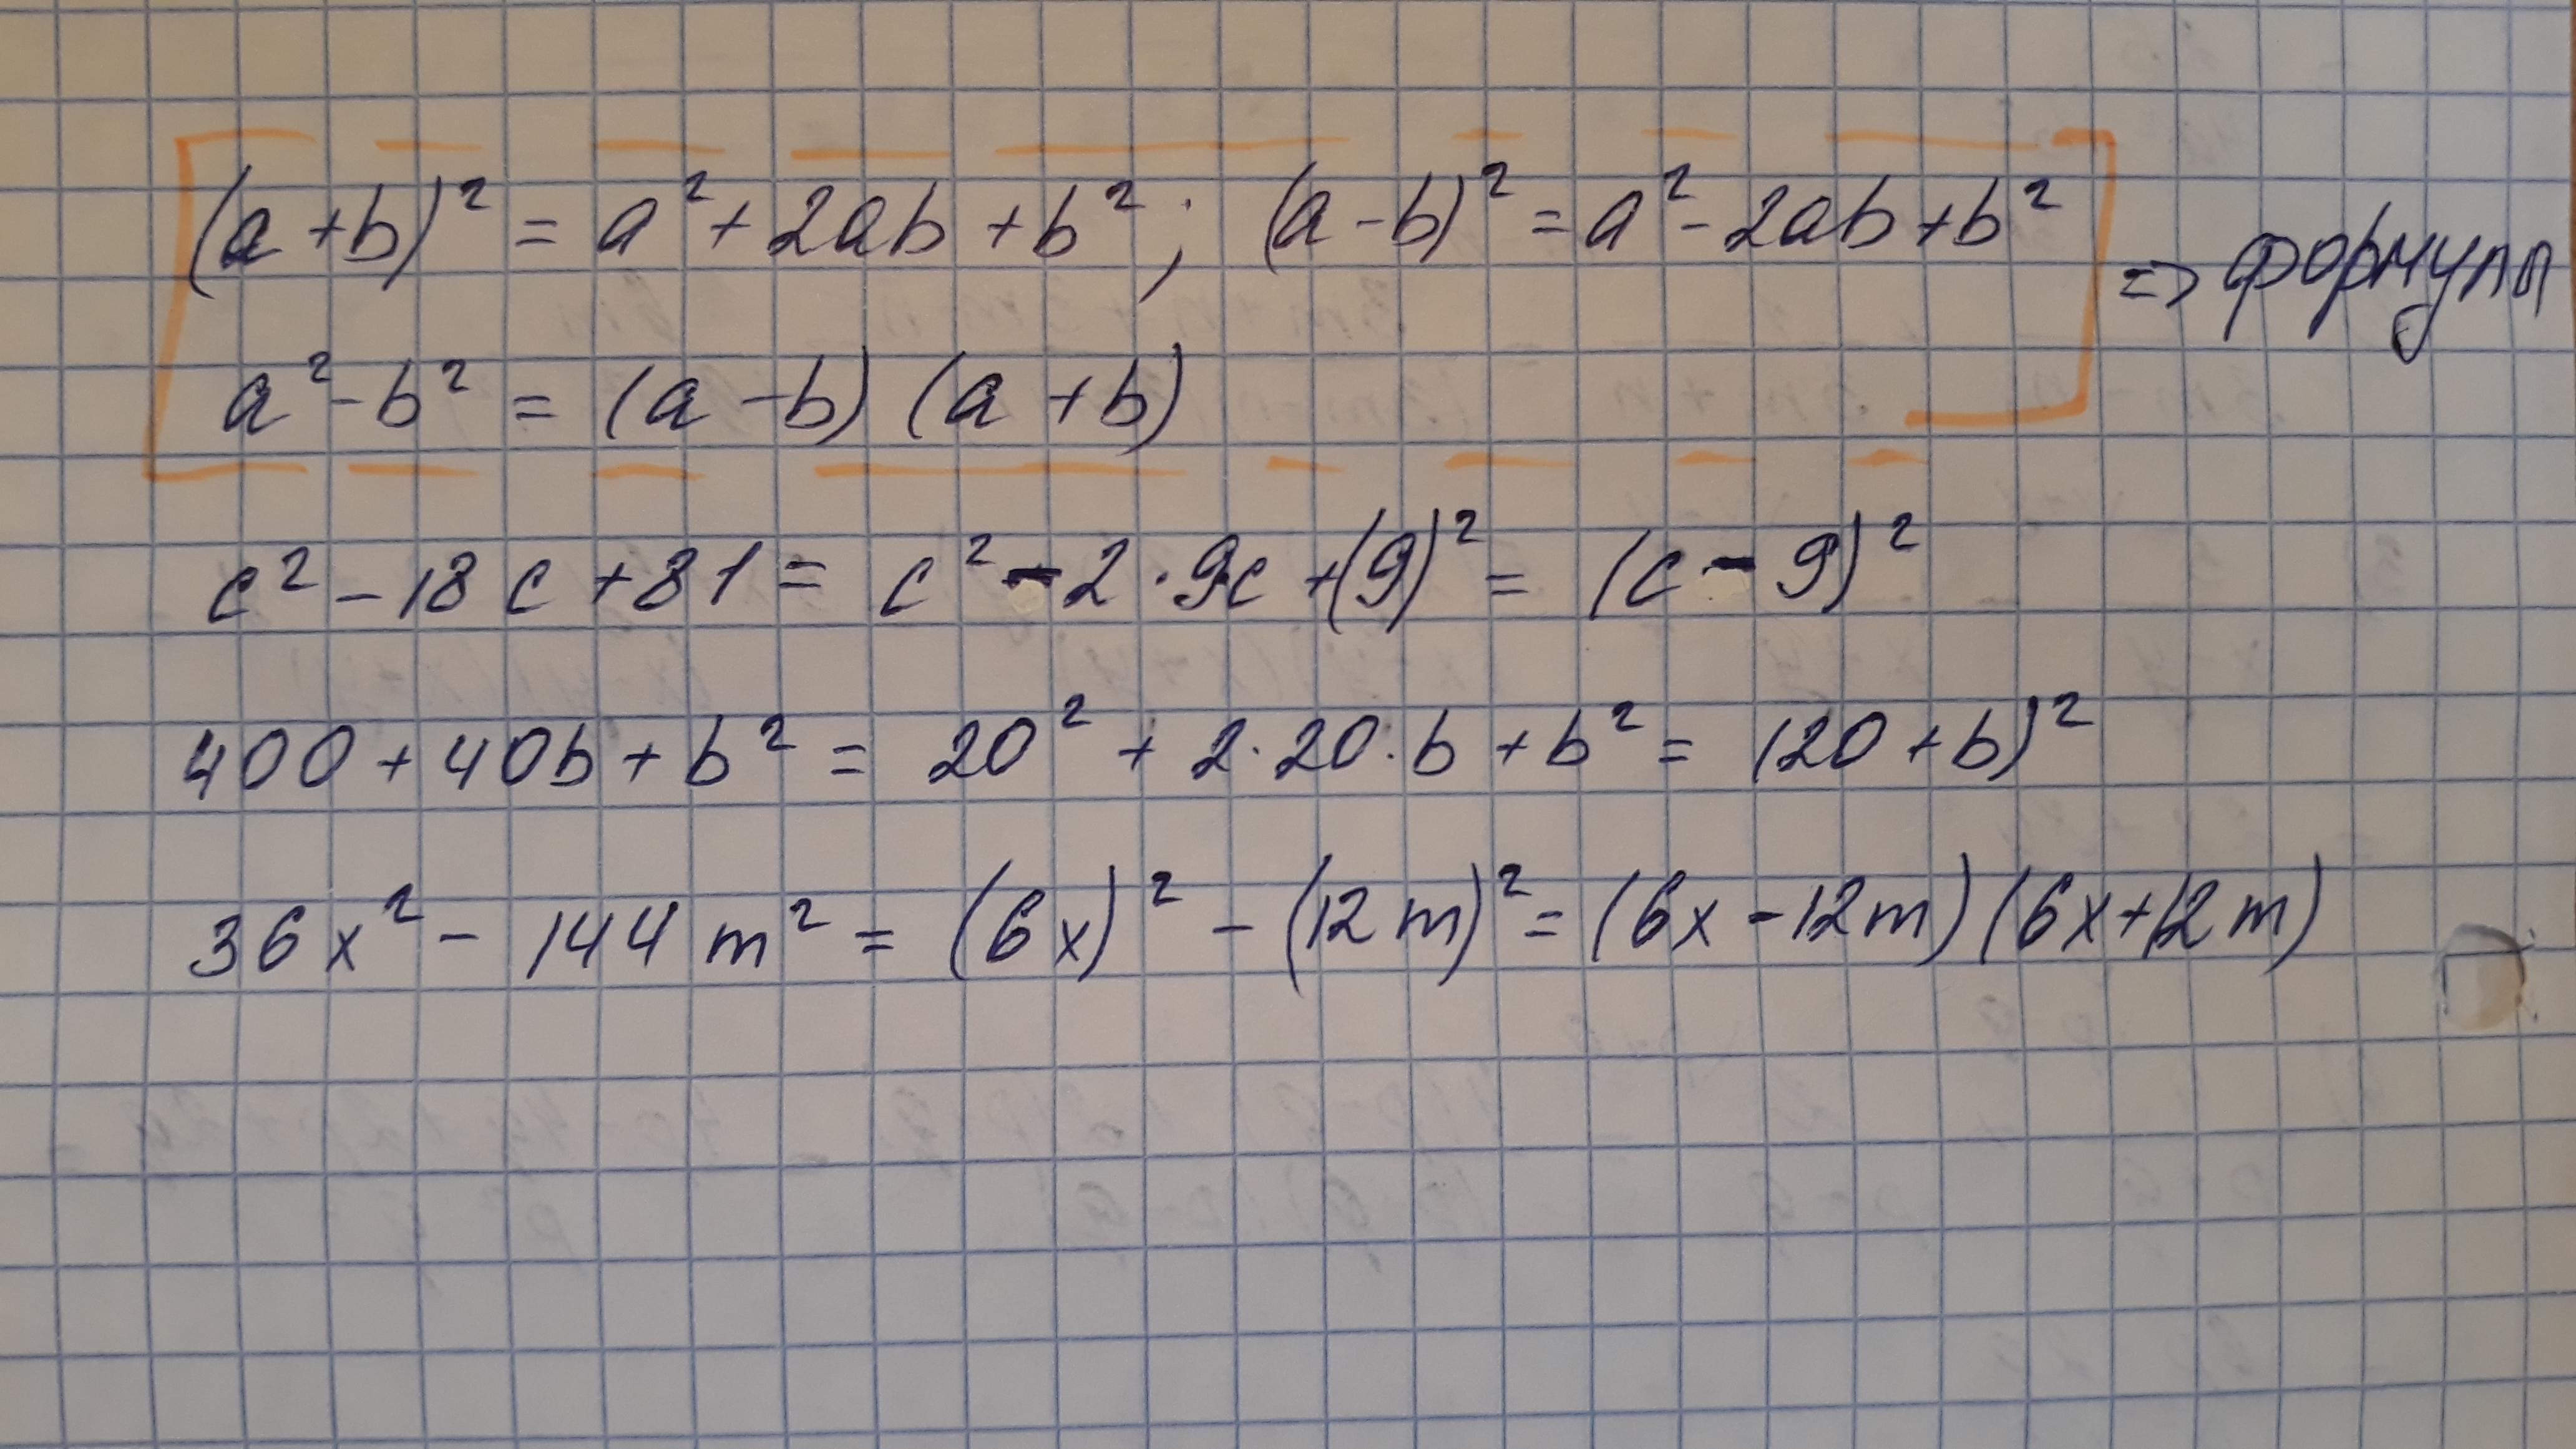 (a+b)² = a² + 2ab + b² ; (a-b)² = a² - 2ab + b² => формулы
a² - b² = (a - b) (a + b)
c² - 18c + 81 = c² - 2·9c + (9)² = (c - 9)²
400 + 40b + b² = 20² + 2·20·b + b² = (20 + b)²
36x² - 144m² = (6x)² - (12m)² = (6x - 12m) (6x + 12m)